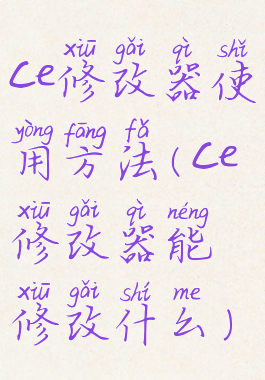 xiū gǎi qì shǐ
ce修改器使
yòng fāng fǎ
用方法(ce
xiū gǎi qì néng
修改器能
xiū gǎi shí me
修改什么)